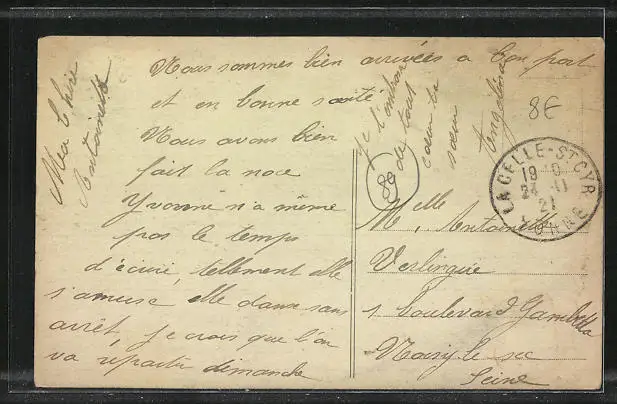 Ma Chère
Antoinette
Nous sommes bien arrivées a bon port
et en bonne santé
Nous avons bien
fait la noce
Yvonne n'a même
pas le temps
d'écrire, tellement elle
s'amuse elle danse sans
arrêt, je crois que l'on
va repartir dimanche
Je t'embrasse
de tout
cœur ta
sœur
Angelina
8€
80
LA CELLE-ST-CYR
18 10
24 -11
21
YONNE
Melle Antoinette
Verlinguie
1 boulevard Gambetta
Noisy le sec
Seine